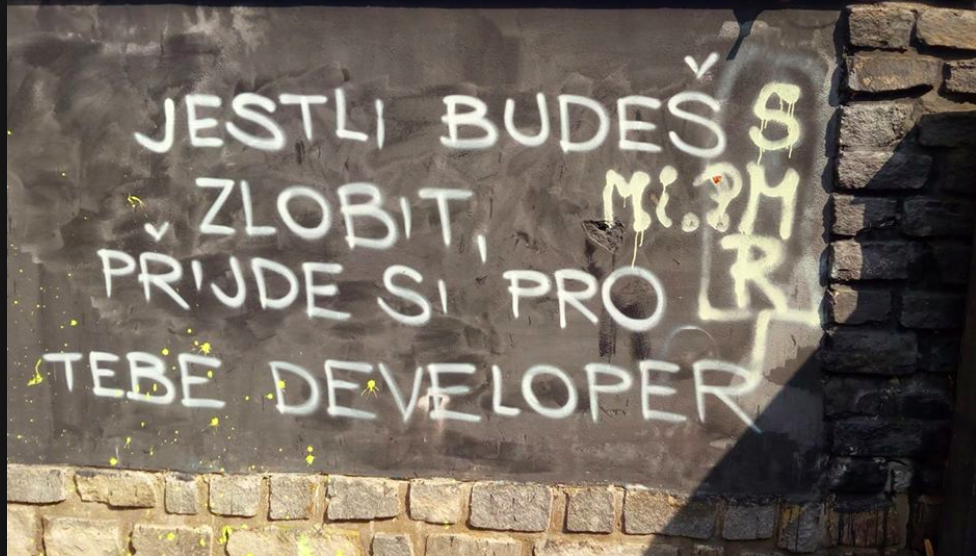 JESTLI BUDEŠ
ZLOBIT,
PŘIJDE SI PRO
TEBE DEVELOPER
SMR